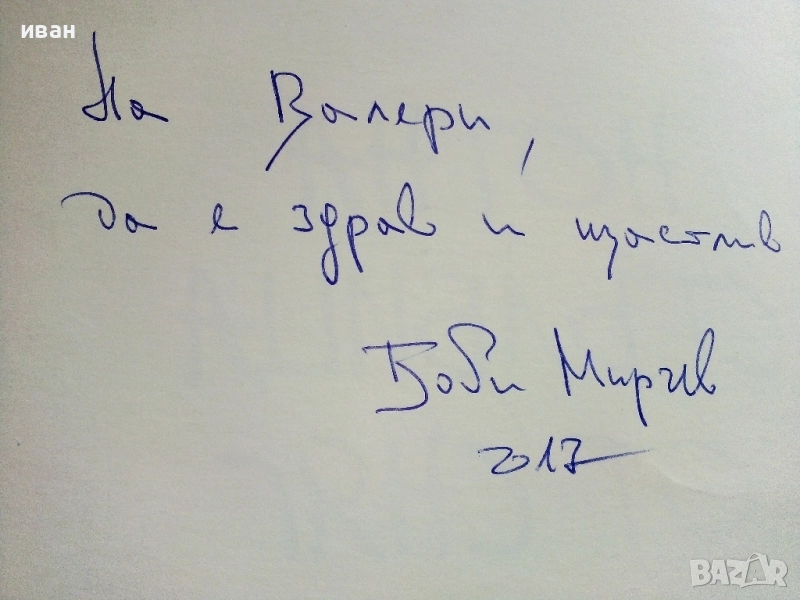 иван
На Валери,
да е здрав и щастлив
Боби Мирчев
2017
BAZAR